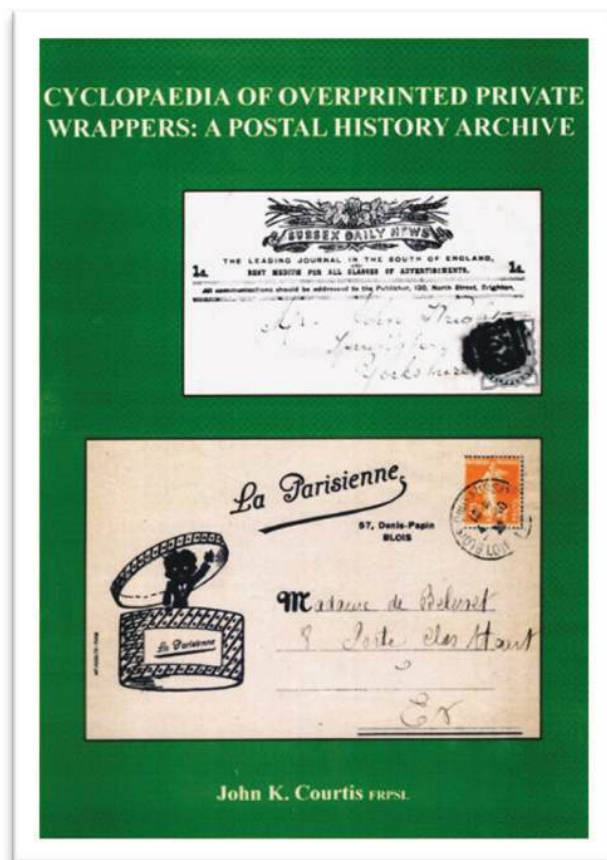 CYCLOPAEDIA OF OVERPRINTED PRIVATE
WRAPPERS: A POSTAL HISTORY ARCHIVE
SUSSEX DAILY NEWS
THE LEADING JOURNAL IN THE SOUTH OF ENGLAND,
AND
1d. BEST MEDIUM FOR ALL CLASSES OF ADVERTISEMENTS. 1d.
All communications should be addressed to the Publisher, 130, North Street, Brighton.
Mr. John
Yorkshire
La Parisienne
57, Denis-Papin
BLOIS
La Parisienne
Madame de
8 Porte Clos Haut
John K. Courtis FRPSL